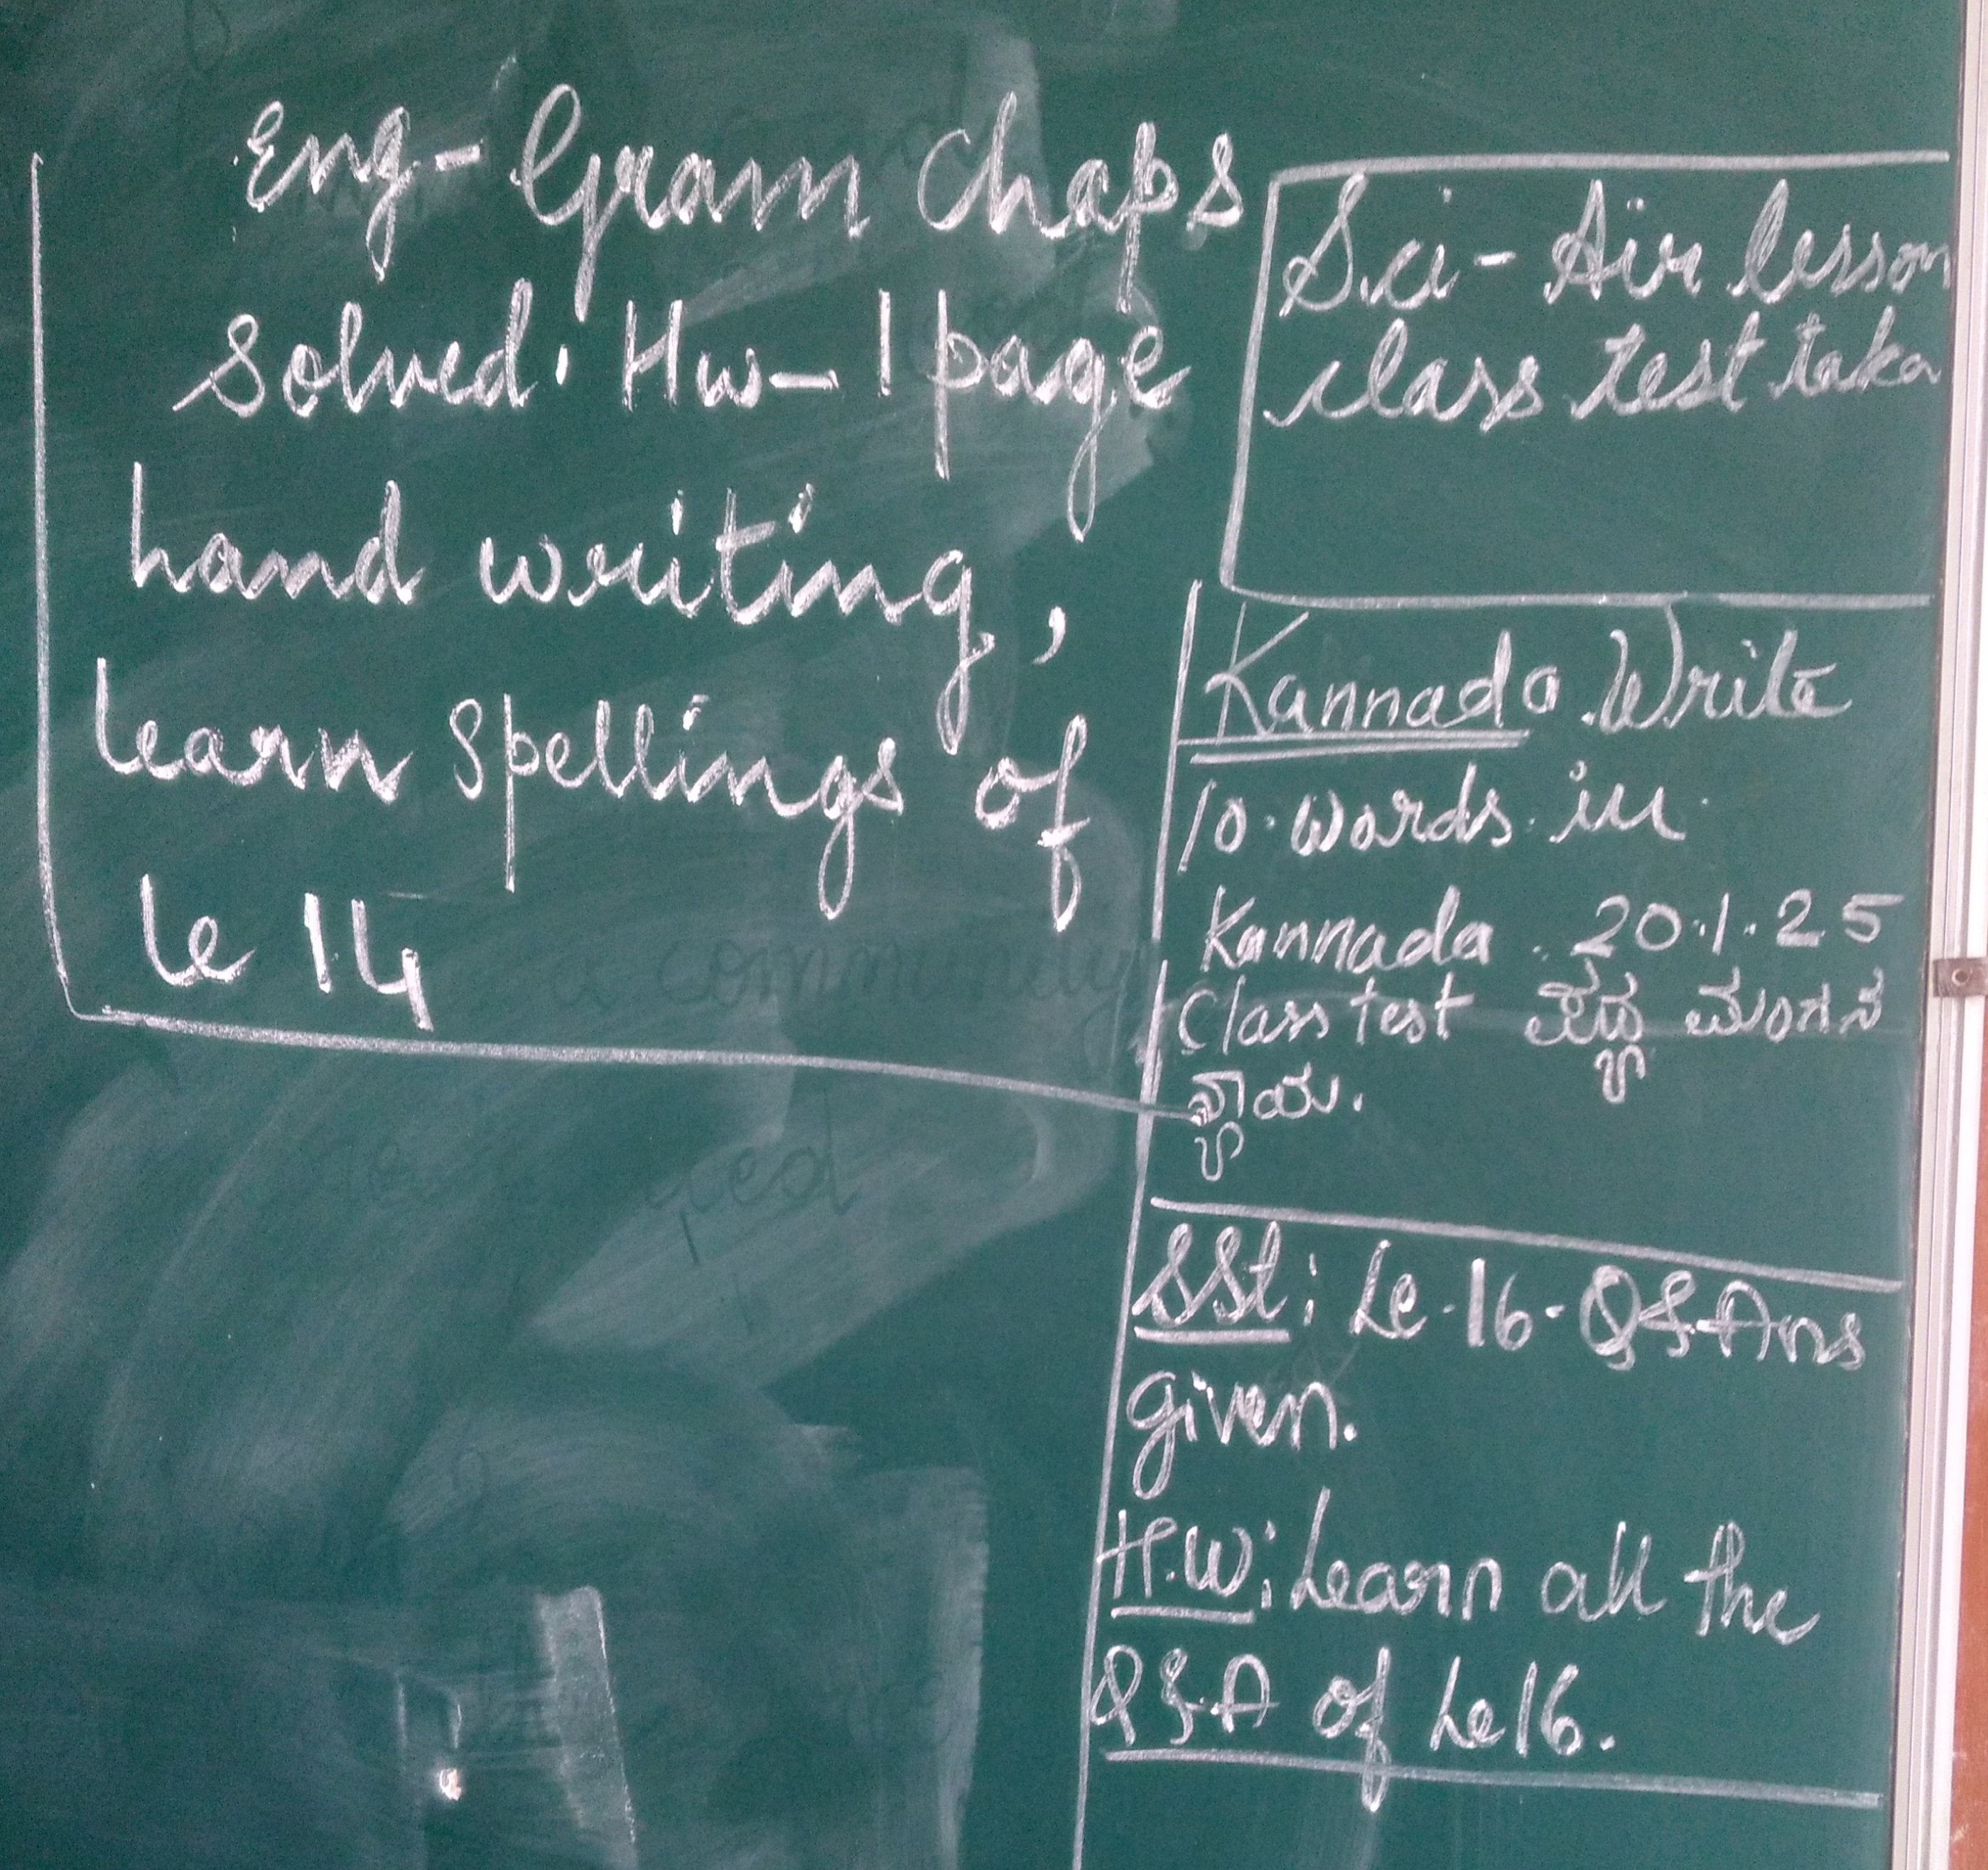 Eng - Gram Chaps
Solved. Hw - 1 page
hand writing,
learn Spellings of
le 14
Sci - Air lesson
class test taken
Kannada. Write
10 words in
Kannada. 20.1.25
Class test ಮಂಗನ
SSt: Le-16-Q&Ans
given.
H.W: Learn all the
Q&A of Le 16.